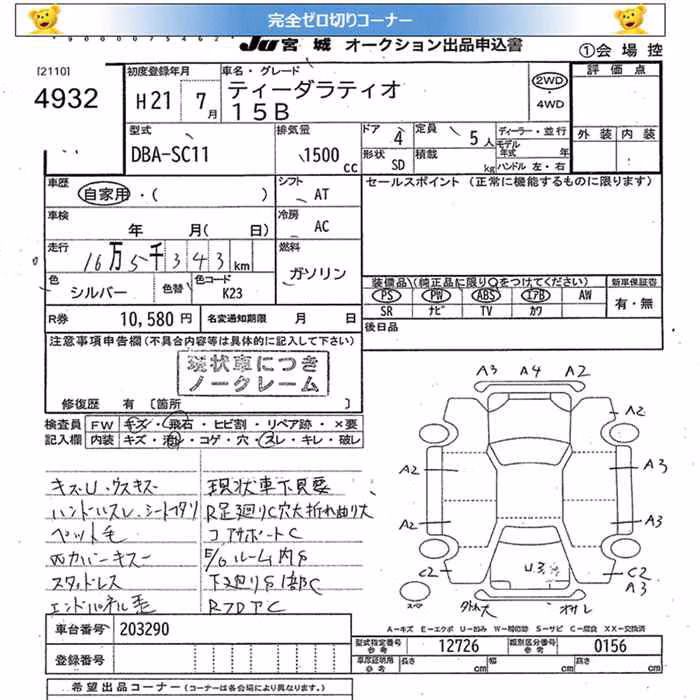 完全ゼロ切りコーナー
JU 宮城 オークション出品申込書
①会場控
[2110]
4932
初度登録年月
H21 7月
車名・グレード
ティーダラティオ
15B
2WD
・4WD
評価点
外装 内装
型式
DBA-SC11
排気量
1500 cc
ドア 4
定員 5人
形状 SD
積載 kg
ディーラー・並行
モデル年式 年
ハンドル 左・右
車歴
自家用・( )
シフト AT
セールスポイント (正常に機能するものに限ります)
車検
年 月( 日)
冷房 AC
走行
16万5千343km
燃料
ガソリン
色 シルバー
色替
色コード K23
装備品(純正品に限り○をつけてください)
新車保証書
PS PW ABS エアB AW
SR ナビ TV カワ
有・無
R券 10,580円
名変通知期限 月 日
後日品
注意事項申告欄(不具合内容等は具体的に記入して下さい)
現状車につき
ノークレーム
修復歴 有 〔箇所
検査員記入欄
FW キズ・飛石・ヒビ割・リペア跡・×要
内装 キズ・汚・コゲ・穴・スレ・キレ・破レ
キズU・ウスキズ
ペット毛
スタッドレス
現状車下見要
コアサポートC
E/Gルーム内S
下廻りS1部C
A3 A4 A2
A2
A2 A3
A2 A3
C2 U3 C2
A3
スペア
A-キズ E-エクボ U-凹み W-補修跡 S-サビ C-腐食 XX-交換済
車台番号 203290
登録番号
型式指定番号 参考 12726
類別区分番号 参考 0156
車庫証明用 参考 長さ cm 幅 cm 高さ cm
希望出品コーナー (コーナーは各会場により異なります。)